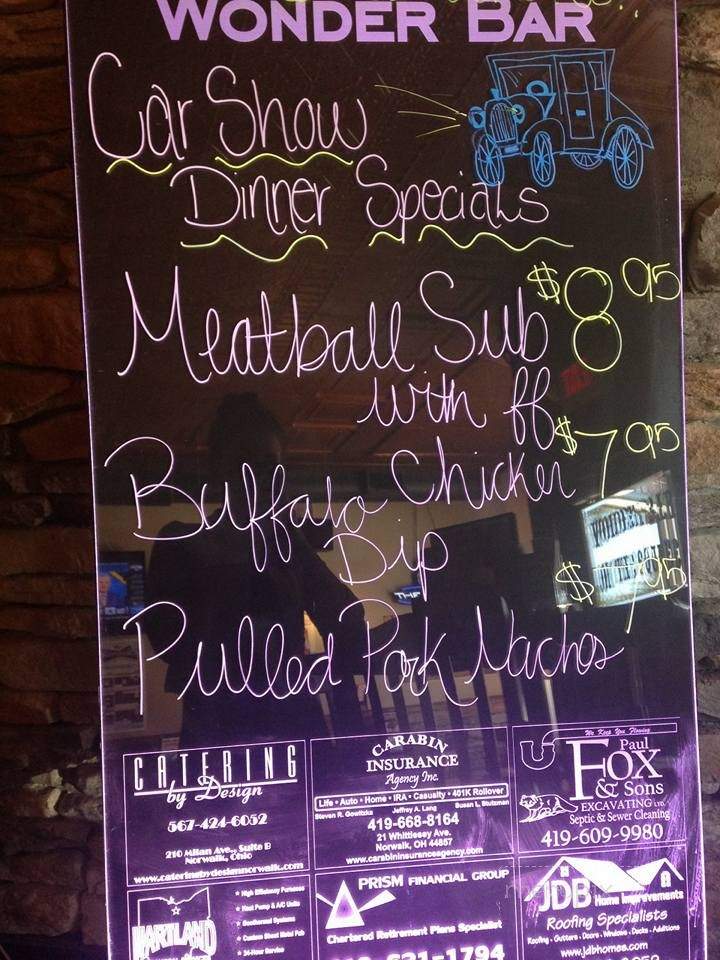 WONDER BAR
Car Show
Dinner Specials
$8.95
Meatball Sub
with ff
$7.95
Buffalo Chicken
Dip
$7.95
Pulled Pork Nachos
CATERING
by Design
567-424-6052
210 Milan Ave., Suite B
Norwalk, Ohio
www.cateringbydesignnorwalk.com
CARABIN
INSURANCE
Agency Inc.
Life • Auto • Home • IRA • Casualty • 401K Rollover
Jeffrey A. Lang
419-668-8164
21 Whittlesey Ave.
Norwalk, OH 44857
www.carabininsuranceagency.com
We Keep You Flowing
Paul
FOX
& Sons
EXCAVATING LTD.
Septic & Sewer Cleaning
419-609-9980
HARTLAND
• High Efficiency Furnaces
• Heat Pump & A/C Units
• Geothermal Systems
• Custom Sheet Metal Fab
• 24-Hour Service
PRISM FINANCIAL GROUP
Chartered Retirement Plans Specialist
621-1794
JDB Home Improvements
Roofing Specialists
Roofing • Gutters • Doors • Windows • Decks • Additions
www.jdbhomes.com